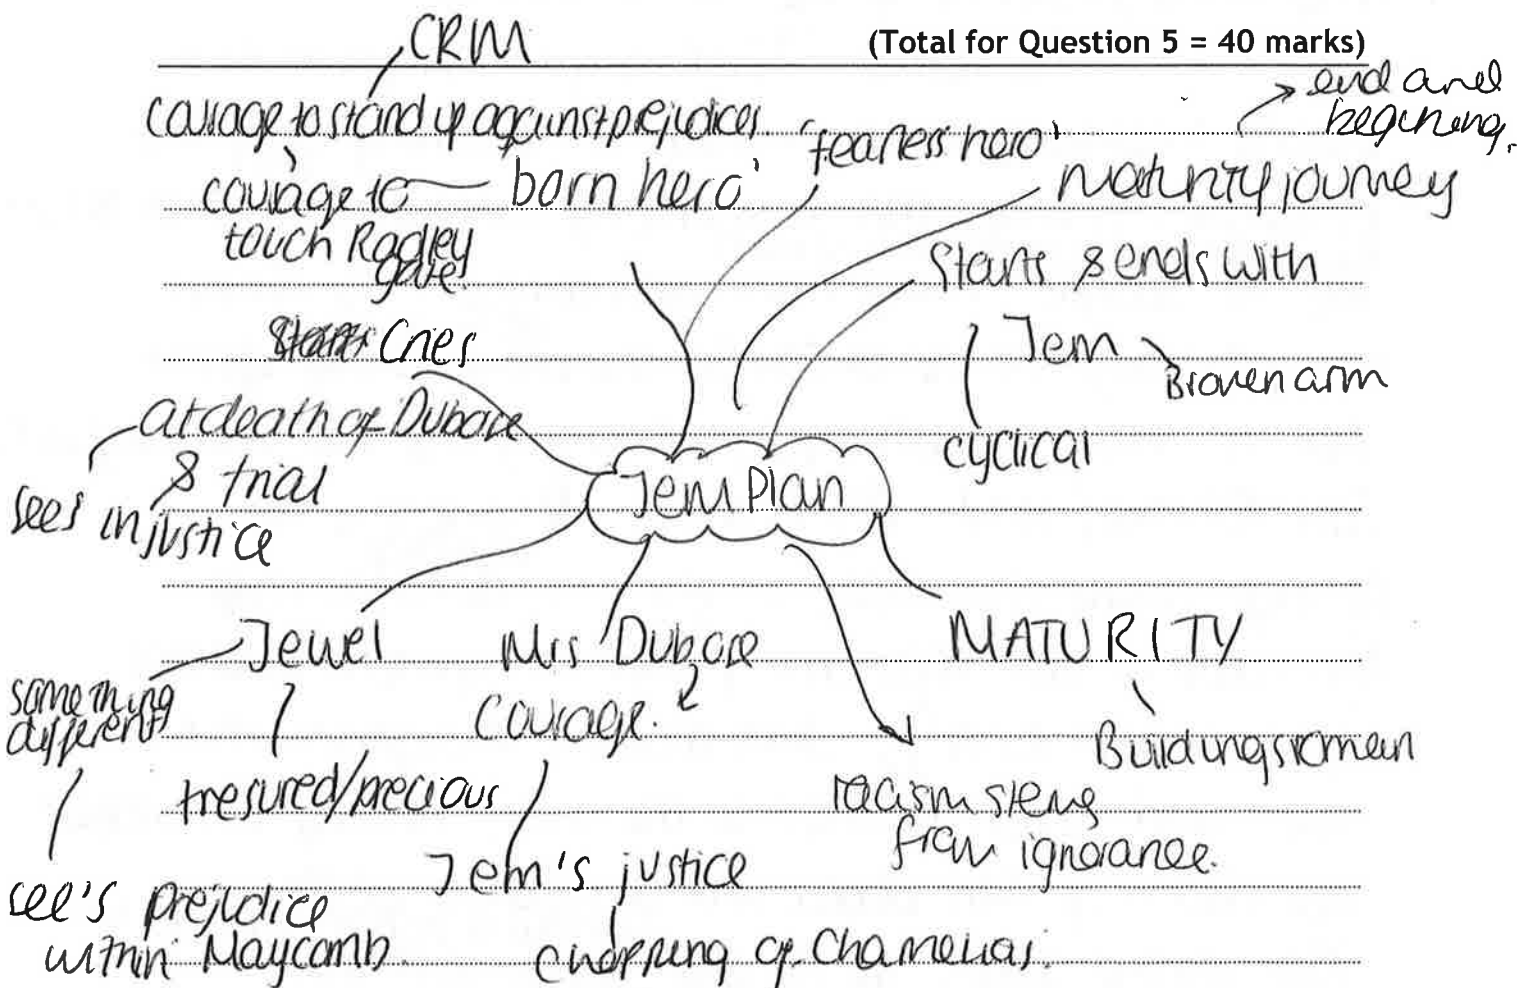 CRM
(Total for Question 5 = 40 marks)
end and
begining.
courage to stand up against prejudices
'fearless hero'
courage to
touch Radley
gate.
born hero'
maturity journey
Starts & ends with
Jem
Broken arm
cyclical
Cries
at death of Dubose
& trial
sees injustice
Jem Plan
Jewel
something
different
tresured/precious
see's prejudice
within Maycomb.
Mrs Dubose
courage.
Jem's justice
chopping of Chamelias.
racism stems
from ignorance.
MATURITY
Buildungsroman